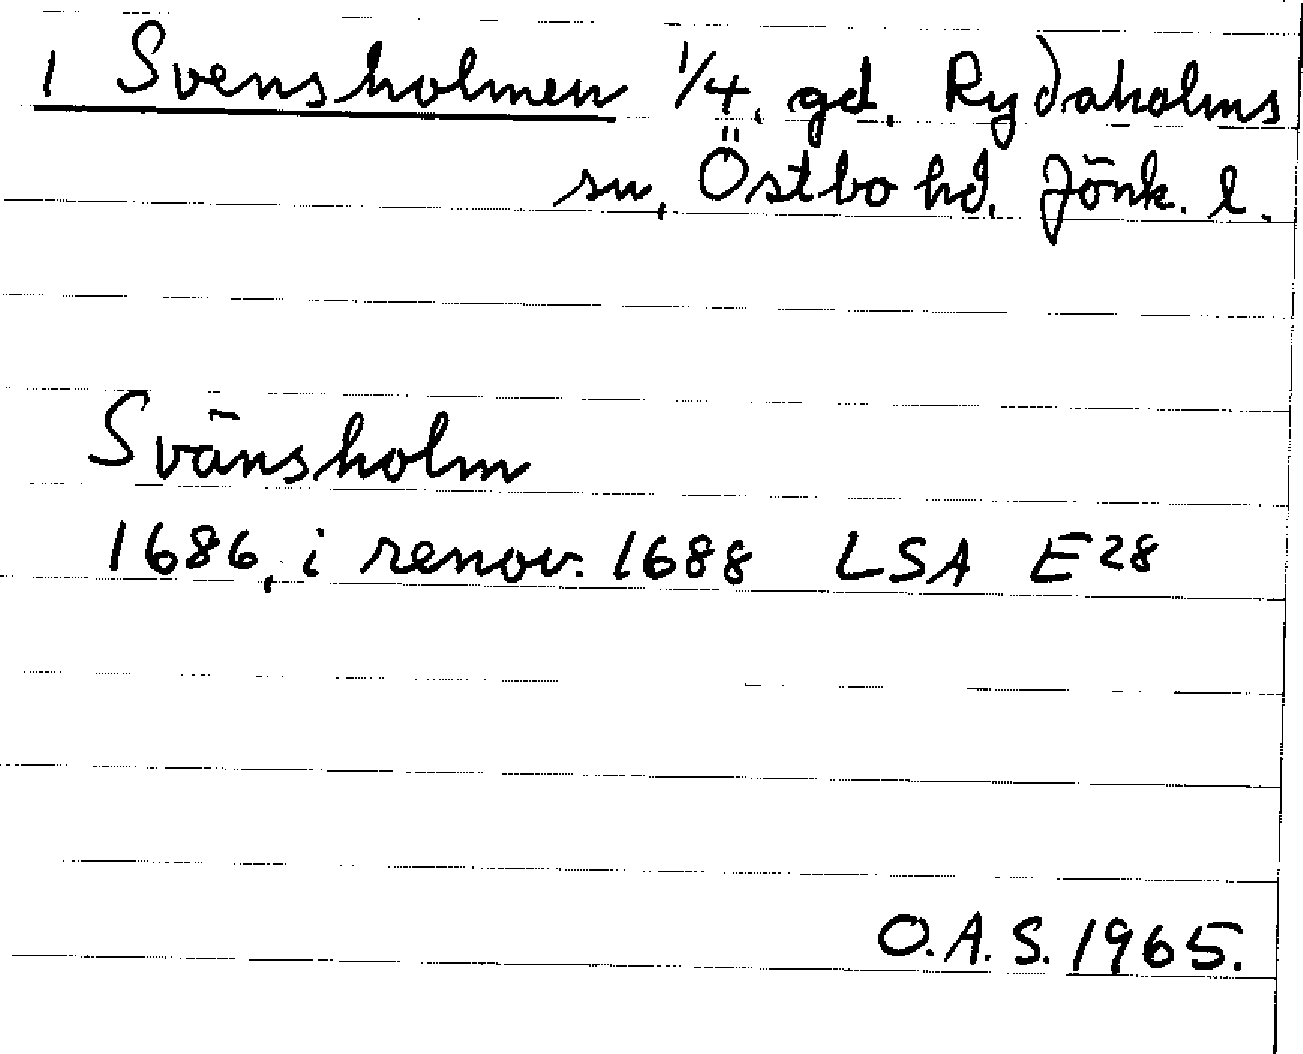 1 Svensholmen 1/4. gd. Rydaholms
sn. Östbo hd. Jönk. l.
Svänsholm
1686, i renov. 1688 LSA E28
O.A.S. 1965.